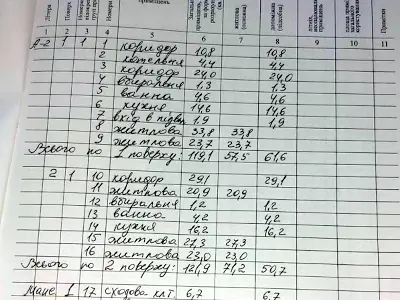 Літера
Поверх
Номери
приміщень
1 2 3 4 5 6 7 8 9 10 11
А-2 1 1 1 коридор 10,8 10,8
2 котельня 4,4 4,4
3 коридор 24,0 24,0
4 вбиральня 1,3 1,3
5 ванна 4,6 4,6
6 кухня 14,6 14,6
7 вхід в підвал 1,9 1,9
8 житлова 33,8 33,8
9 житлова 23,7 23,7
Всього по 1 поверху: 119,1 57,5 61,6
2 1 10 коридор 29,1 29,1
11 житлова 20,9 20,9
12 вбиральня 1,2 1,2
13 ванна 4,2 4,2
14 кухня 16,2 16,2
15 житлова 27,3 27,3
16 житлова 23,0 23,0
Всього по 2 поверху: 121,9 71,2 50,7
Манс. 1 17 сходова кліт. 6,7 6,7